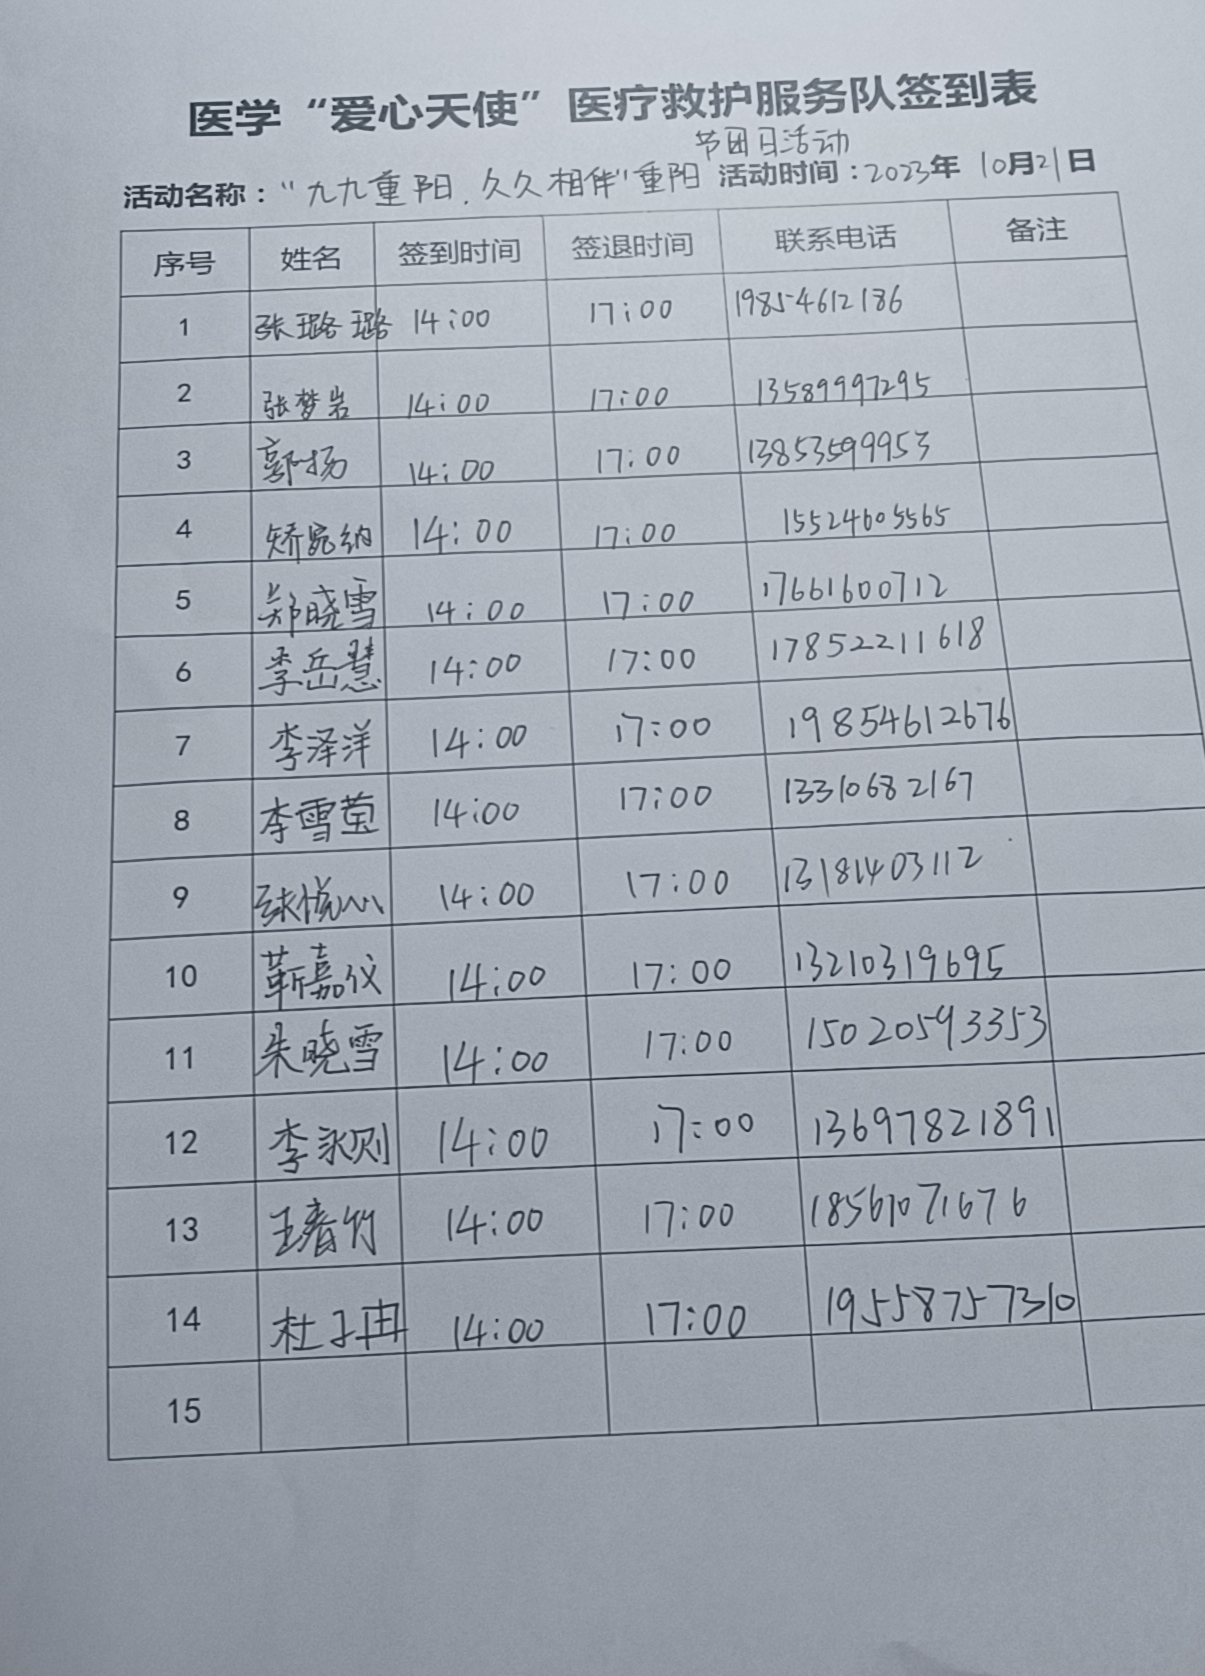 医学“爱心天使”医疗救护服务队签到表
节团日活动
活动名称：“九九重阳.久久相伴”重阳 活动时间：2023年 10月21日
序号 姓名 签到时间 签退时间 联系电话 备注
1 张璐璐 14:00 17:00 19854612186
2 张梦岩 14:00 17:00 13589997295
3 郭扬 14:00 17:00 13853599953
4 矫宛纳 14:00 17:00 15524605565
5 郑晓雪 14:00 17:00 17661600712
6 李岳慧 14:00 17:00 17852211618
7 李泽洋 14:00 17:00 19854612676
8 李雪莹 14:00 17:00 13310682167
9 张悦心 14:00 17:00 13181403112
10 靳嘉仪 14:00 17:00 13210319695
11 朱晓雪 14:00 17:00 15020593353
12 李永则 14:00 17:00 13697821891
13 王春竹 14:00 17:00 18561071676
14 杜子冉 14:00 17:00 19558757310
15